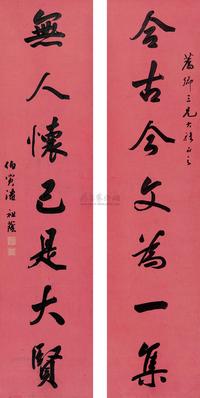 合古今文為一集
卿三兄大雅正之
無人懷己是大賢
伯寅潘祖蔭